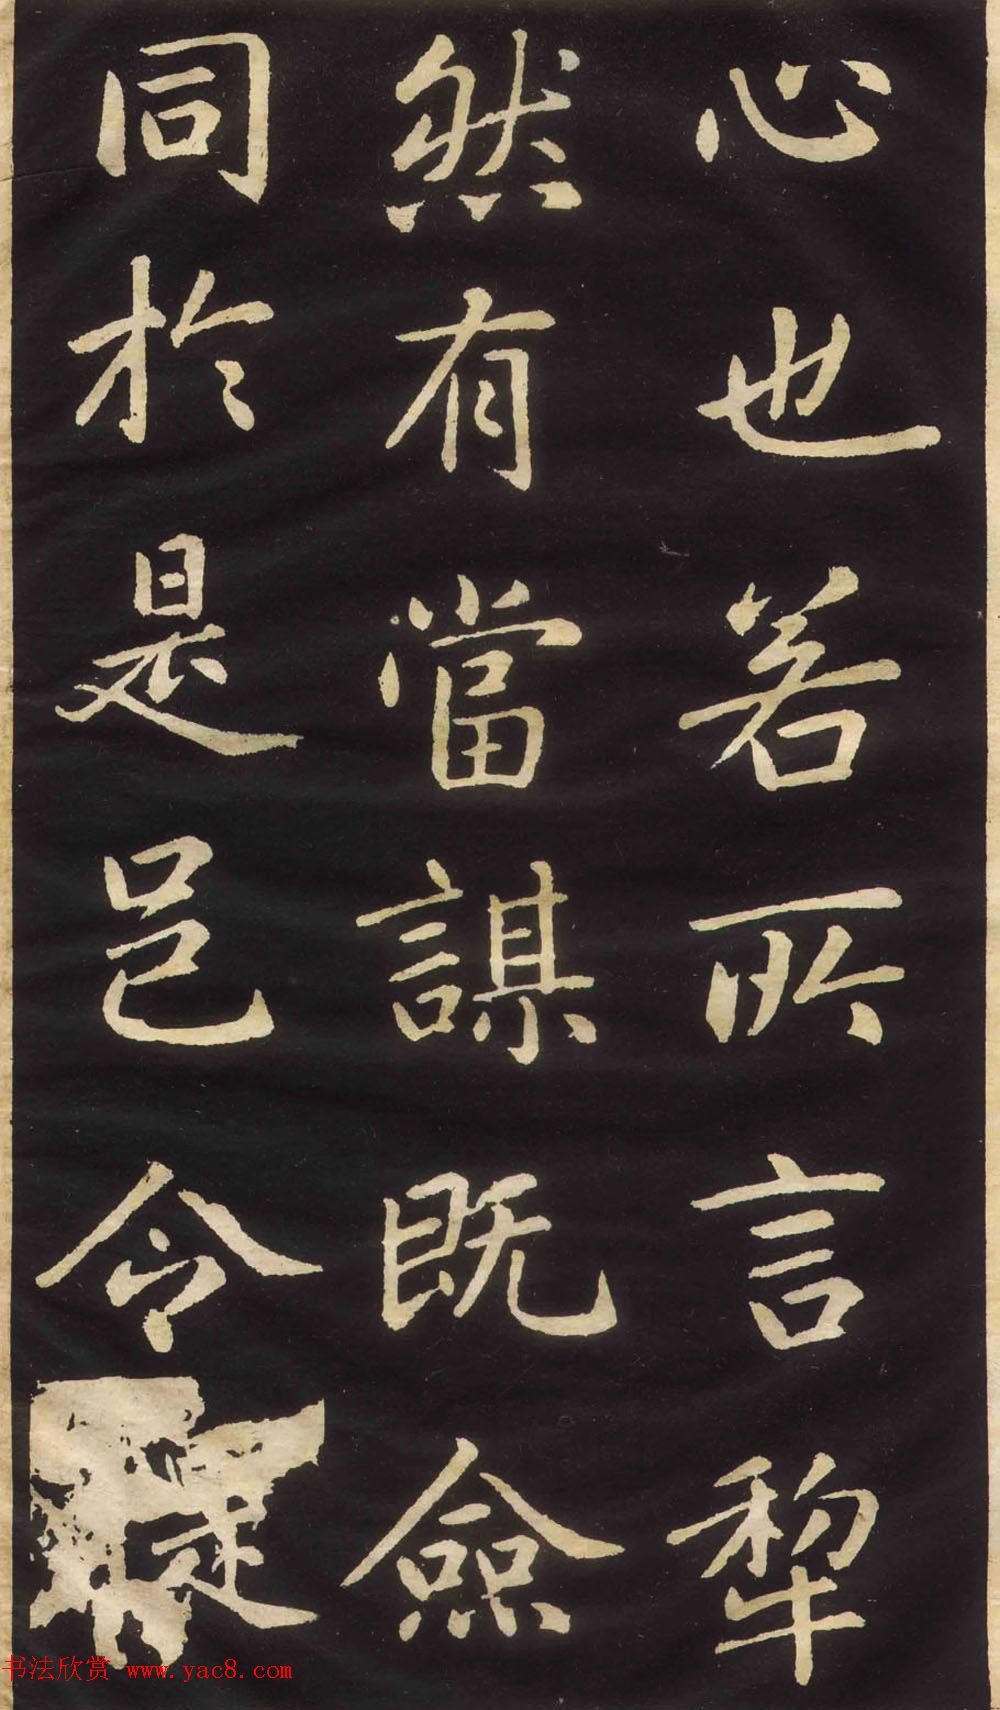 心也若所言犂
然有當謀既僉
同於是邑令
书法欣赏 www.yac8.com